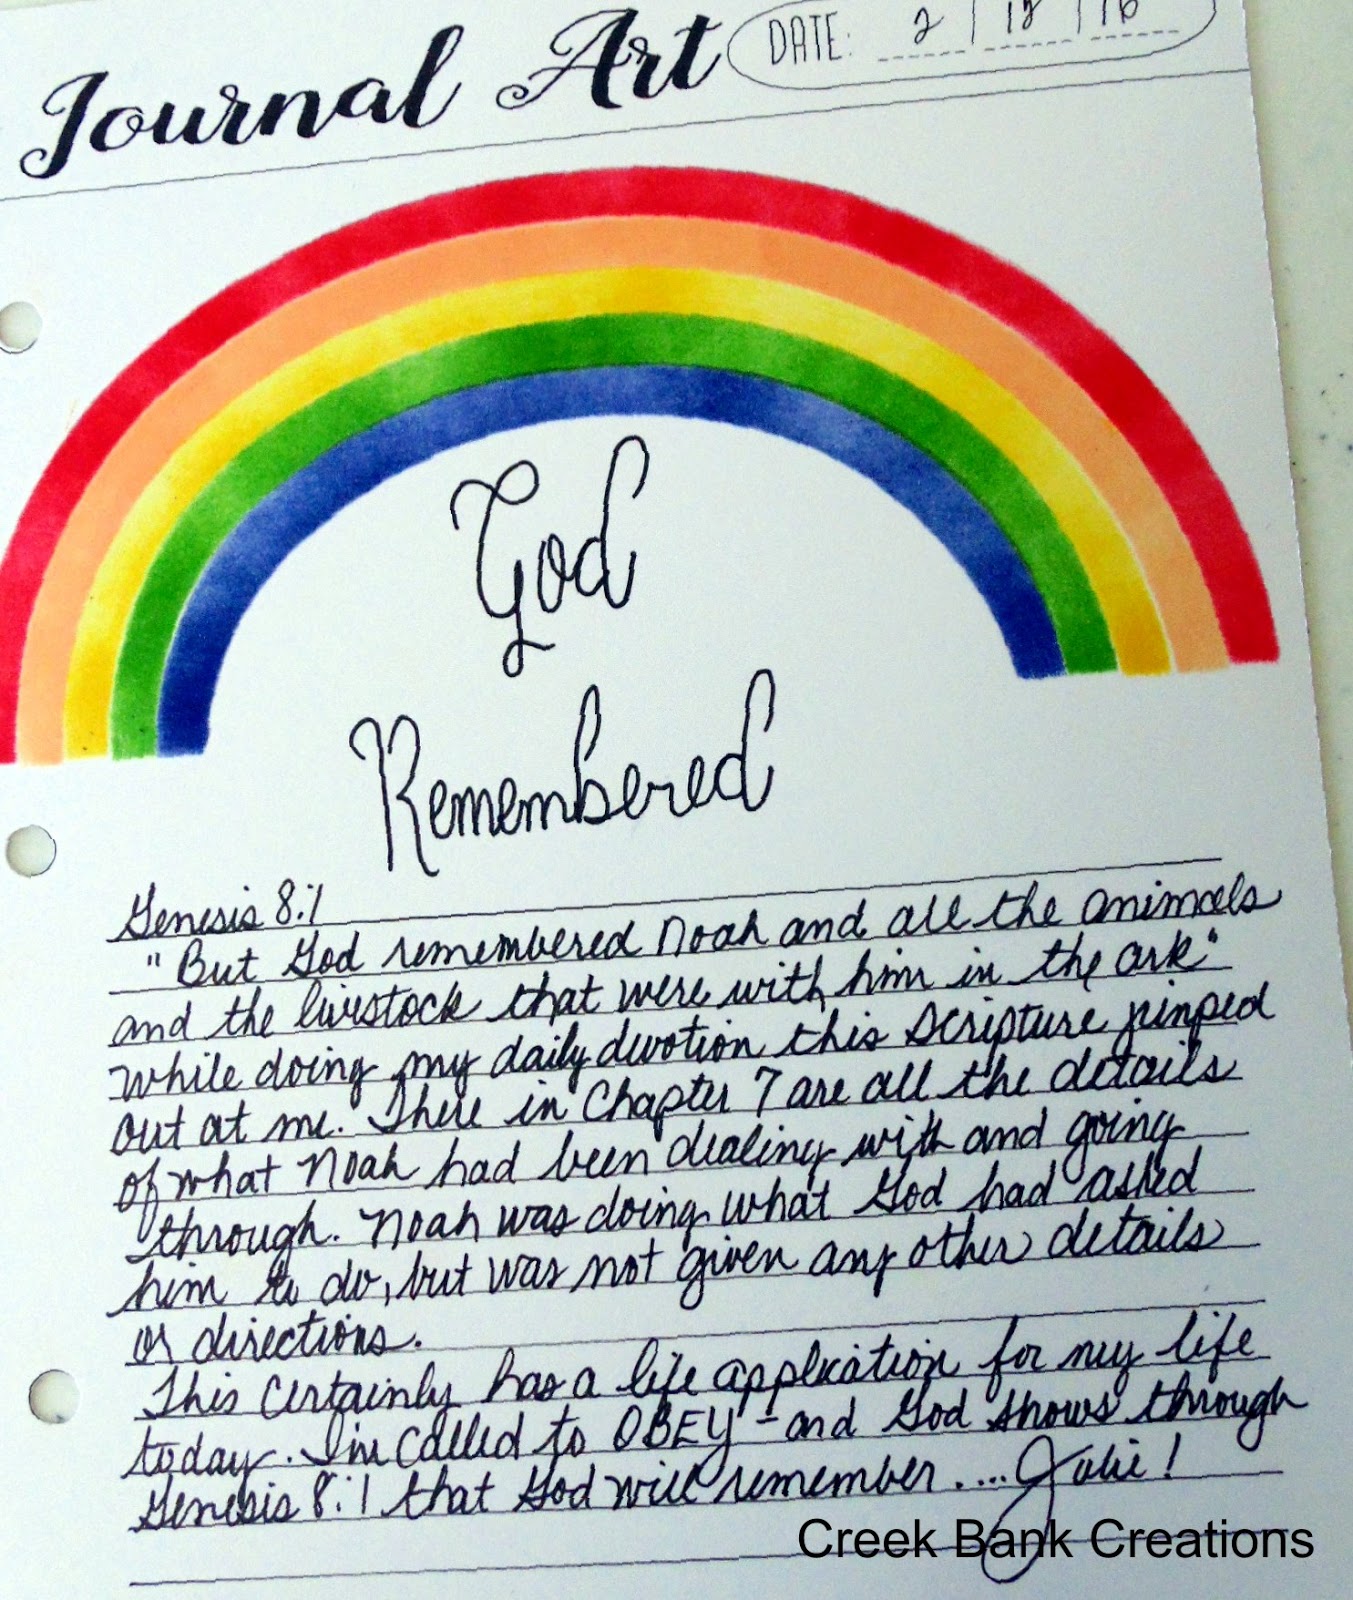 Journal Art
DATE: 2 | 12 | 16
God
Remembered
Genesis 8:1
"But God remembered Noah and all the animals
and the livestock that were with him in the ark"
while doing my daily devotion this Scripture jumped
out at me. There in Chapter 7 are all the details
of what Noah had been dealing with and going
through. Noah was doing what God had asked
him to do, but was not given any other details
or directions.
This certainly has a life application for my life
today. I'm called to OBEY - and God shows through
Genesis 8:1 that God will remember .... Julie!
Creek Bank Creations